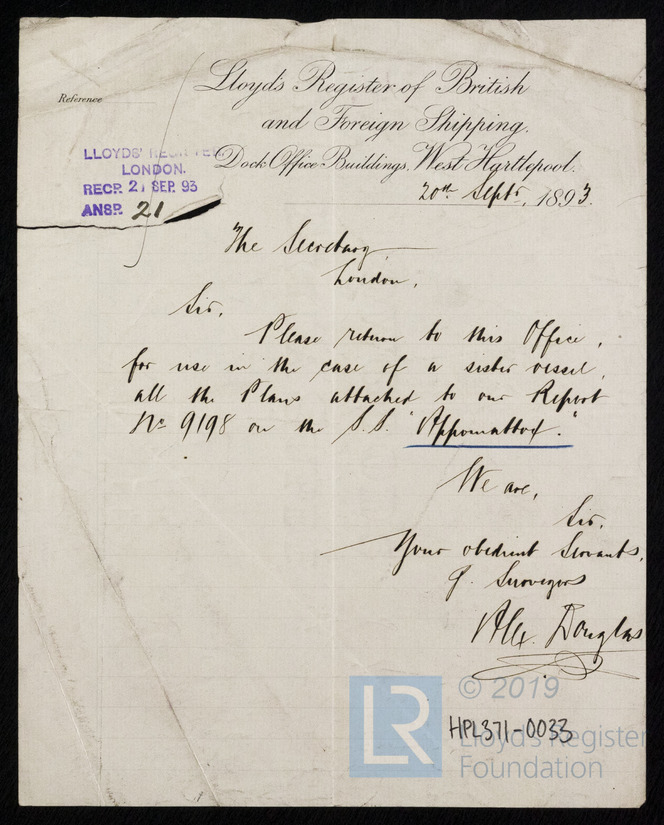 Lloyd's Register of British
and Foreign Shipping.
Reference
Dock Office Buildings, West Hartlepool.
LLOYDS' REGISTER
LONDON.
RECD. 21 SEP. 93
ANSD. 21
20th Septr, 1893.
The Secretary,
London.
Sir,
Please return to this Office,
for use in the case of a sister vessel,
all the Plans attached to our Report
No 9198 on the S.S. "Appomattox."
We are,
Sir,
Your obedient Servants,
Surveyors
Alex. Douglas
© 2019
LR
HPL371-0033
Lloyd's Register
Foundation